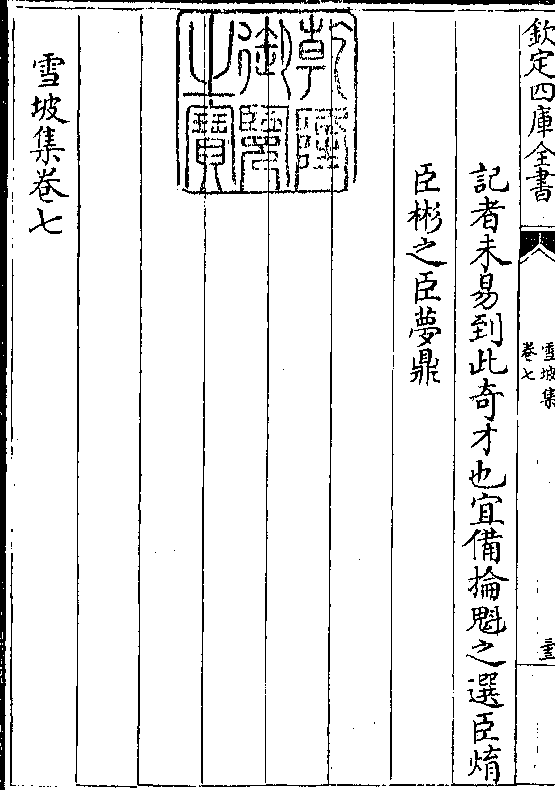 欽定四庫全書
雪坡集
卷七
記者未易到此奇才也宜備掄魁之選臣焴
臣彬之臣夢鼎
乾隆御覽之寶
雪坡集卷七